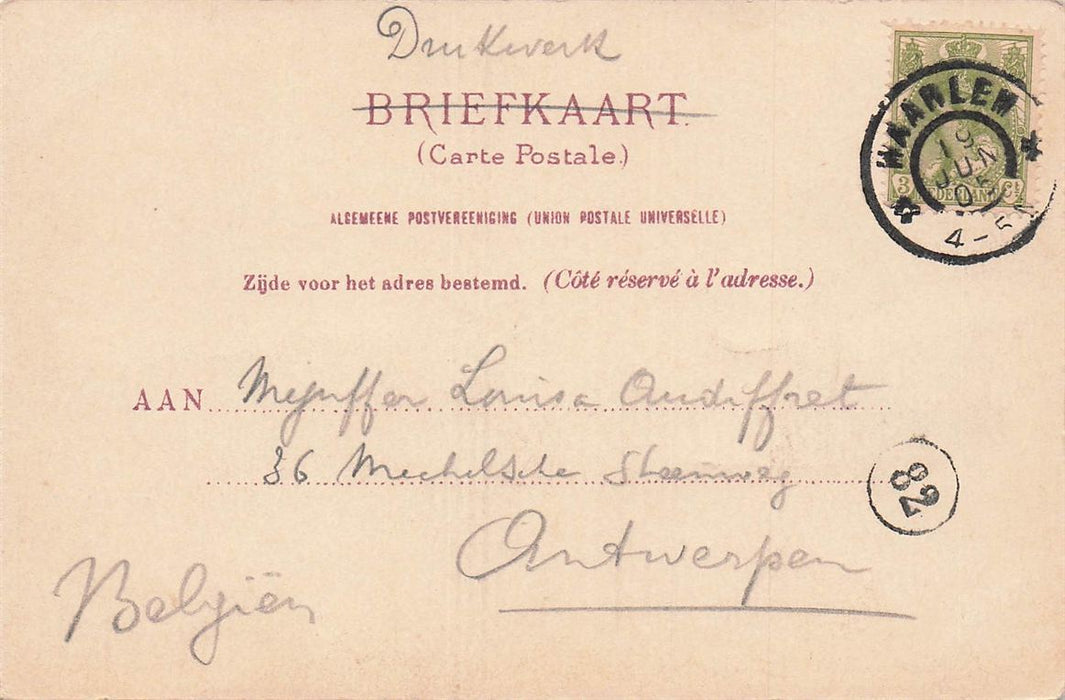 Drukwerk
BRIEFKAART.
(Carte Postale.)
ALGEMEENE POSTVEREENIGING (UNION POSTALE UNIVERSELLE)
Zijde voor het adres bestemd. (Côté réservé à l'adresse.)
AAN Mejuffer Louisa Audiffret
36 Mechelsche Steenweg
Antwerpen
Belgiën
HAARLEM
19
JUN
05
4-5
NEDERLAND
82